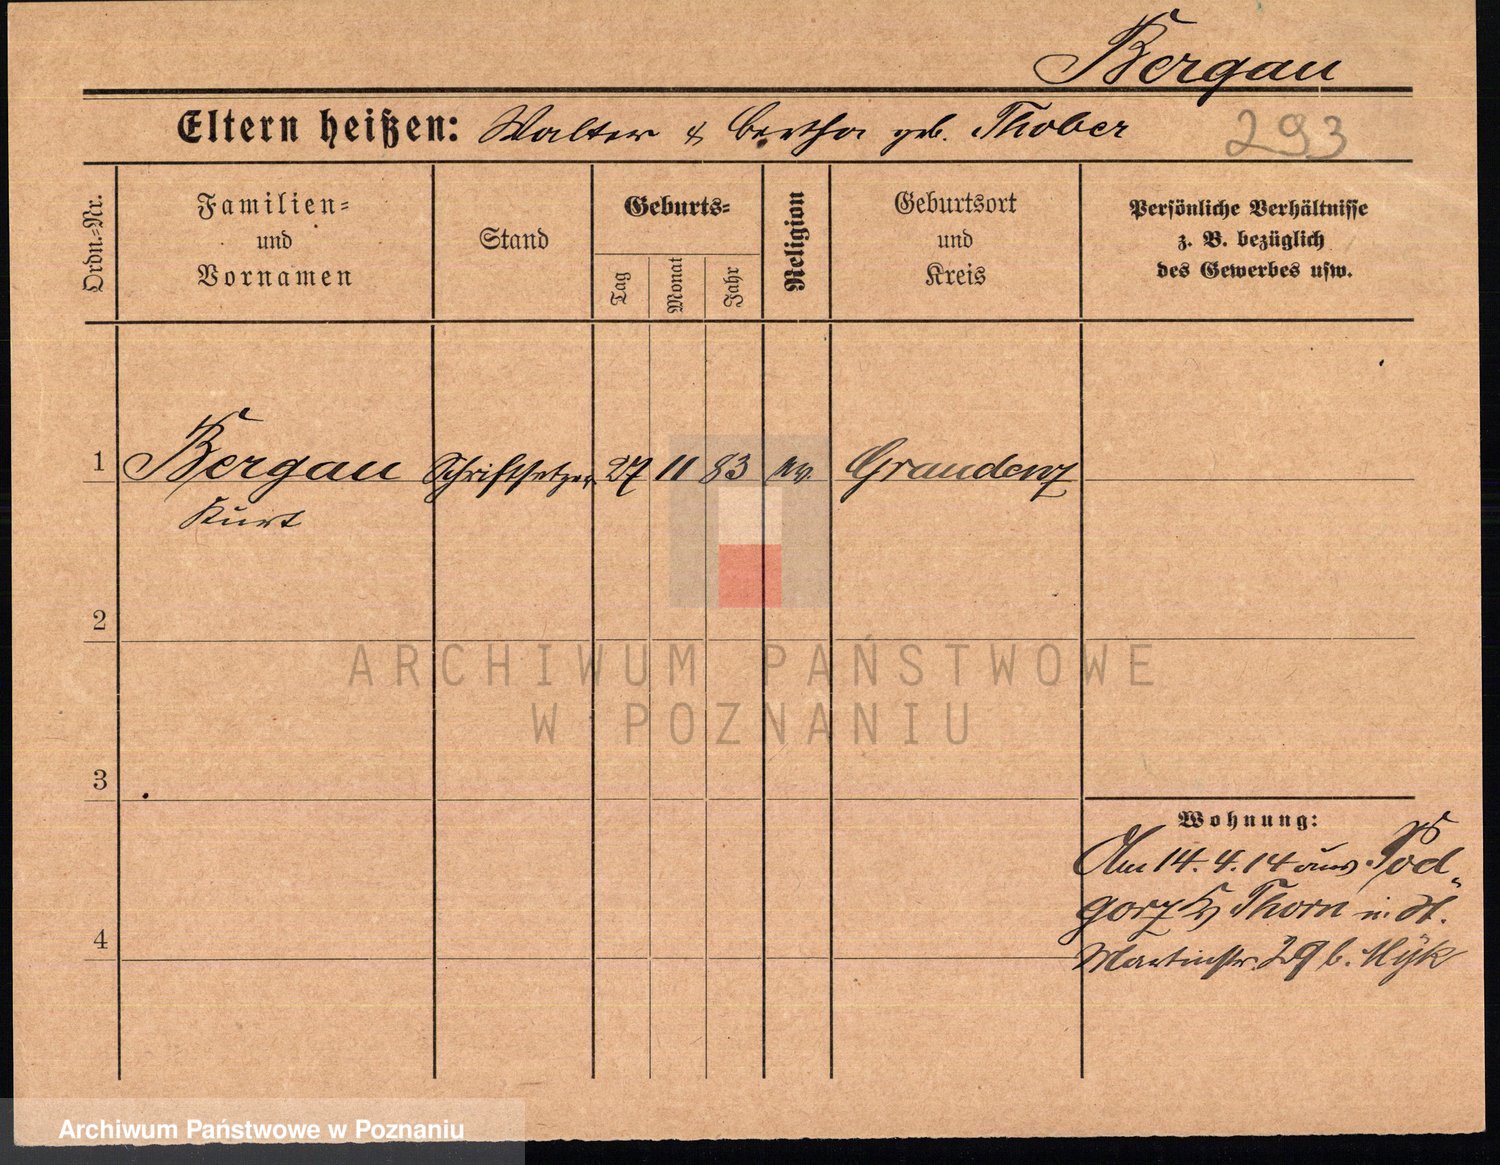 Bergau
Eltern heißen: Walter & Bertha geb. Thober
293
Ordn.=Nr.
Familien=
und
Vornamen
Stand
Geburts=
Tag
Monat
Jahr
Religion
Geburtsort
und
Kreis
Persönliche Verhältnisse
z. B. bezüglich
des Gewerbes usw.
1 Bergau Schriftsetzer 27 11 83 ev. Graudenz
Kurt
2
3
4
Wohnung:
Am 14.4.14 aus Pod„
gorz Kr Thorn n. St.
Martinstr. 29 b.
ARCHIWUM PAŃSTWOWE
W POZNANIU
Archiwum Państwowe w Poznaniu